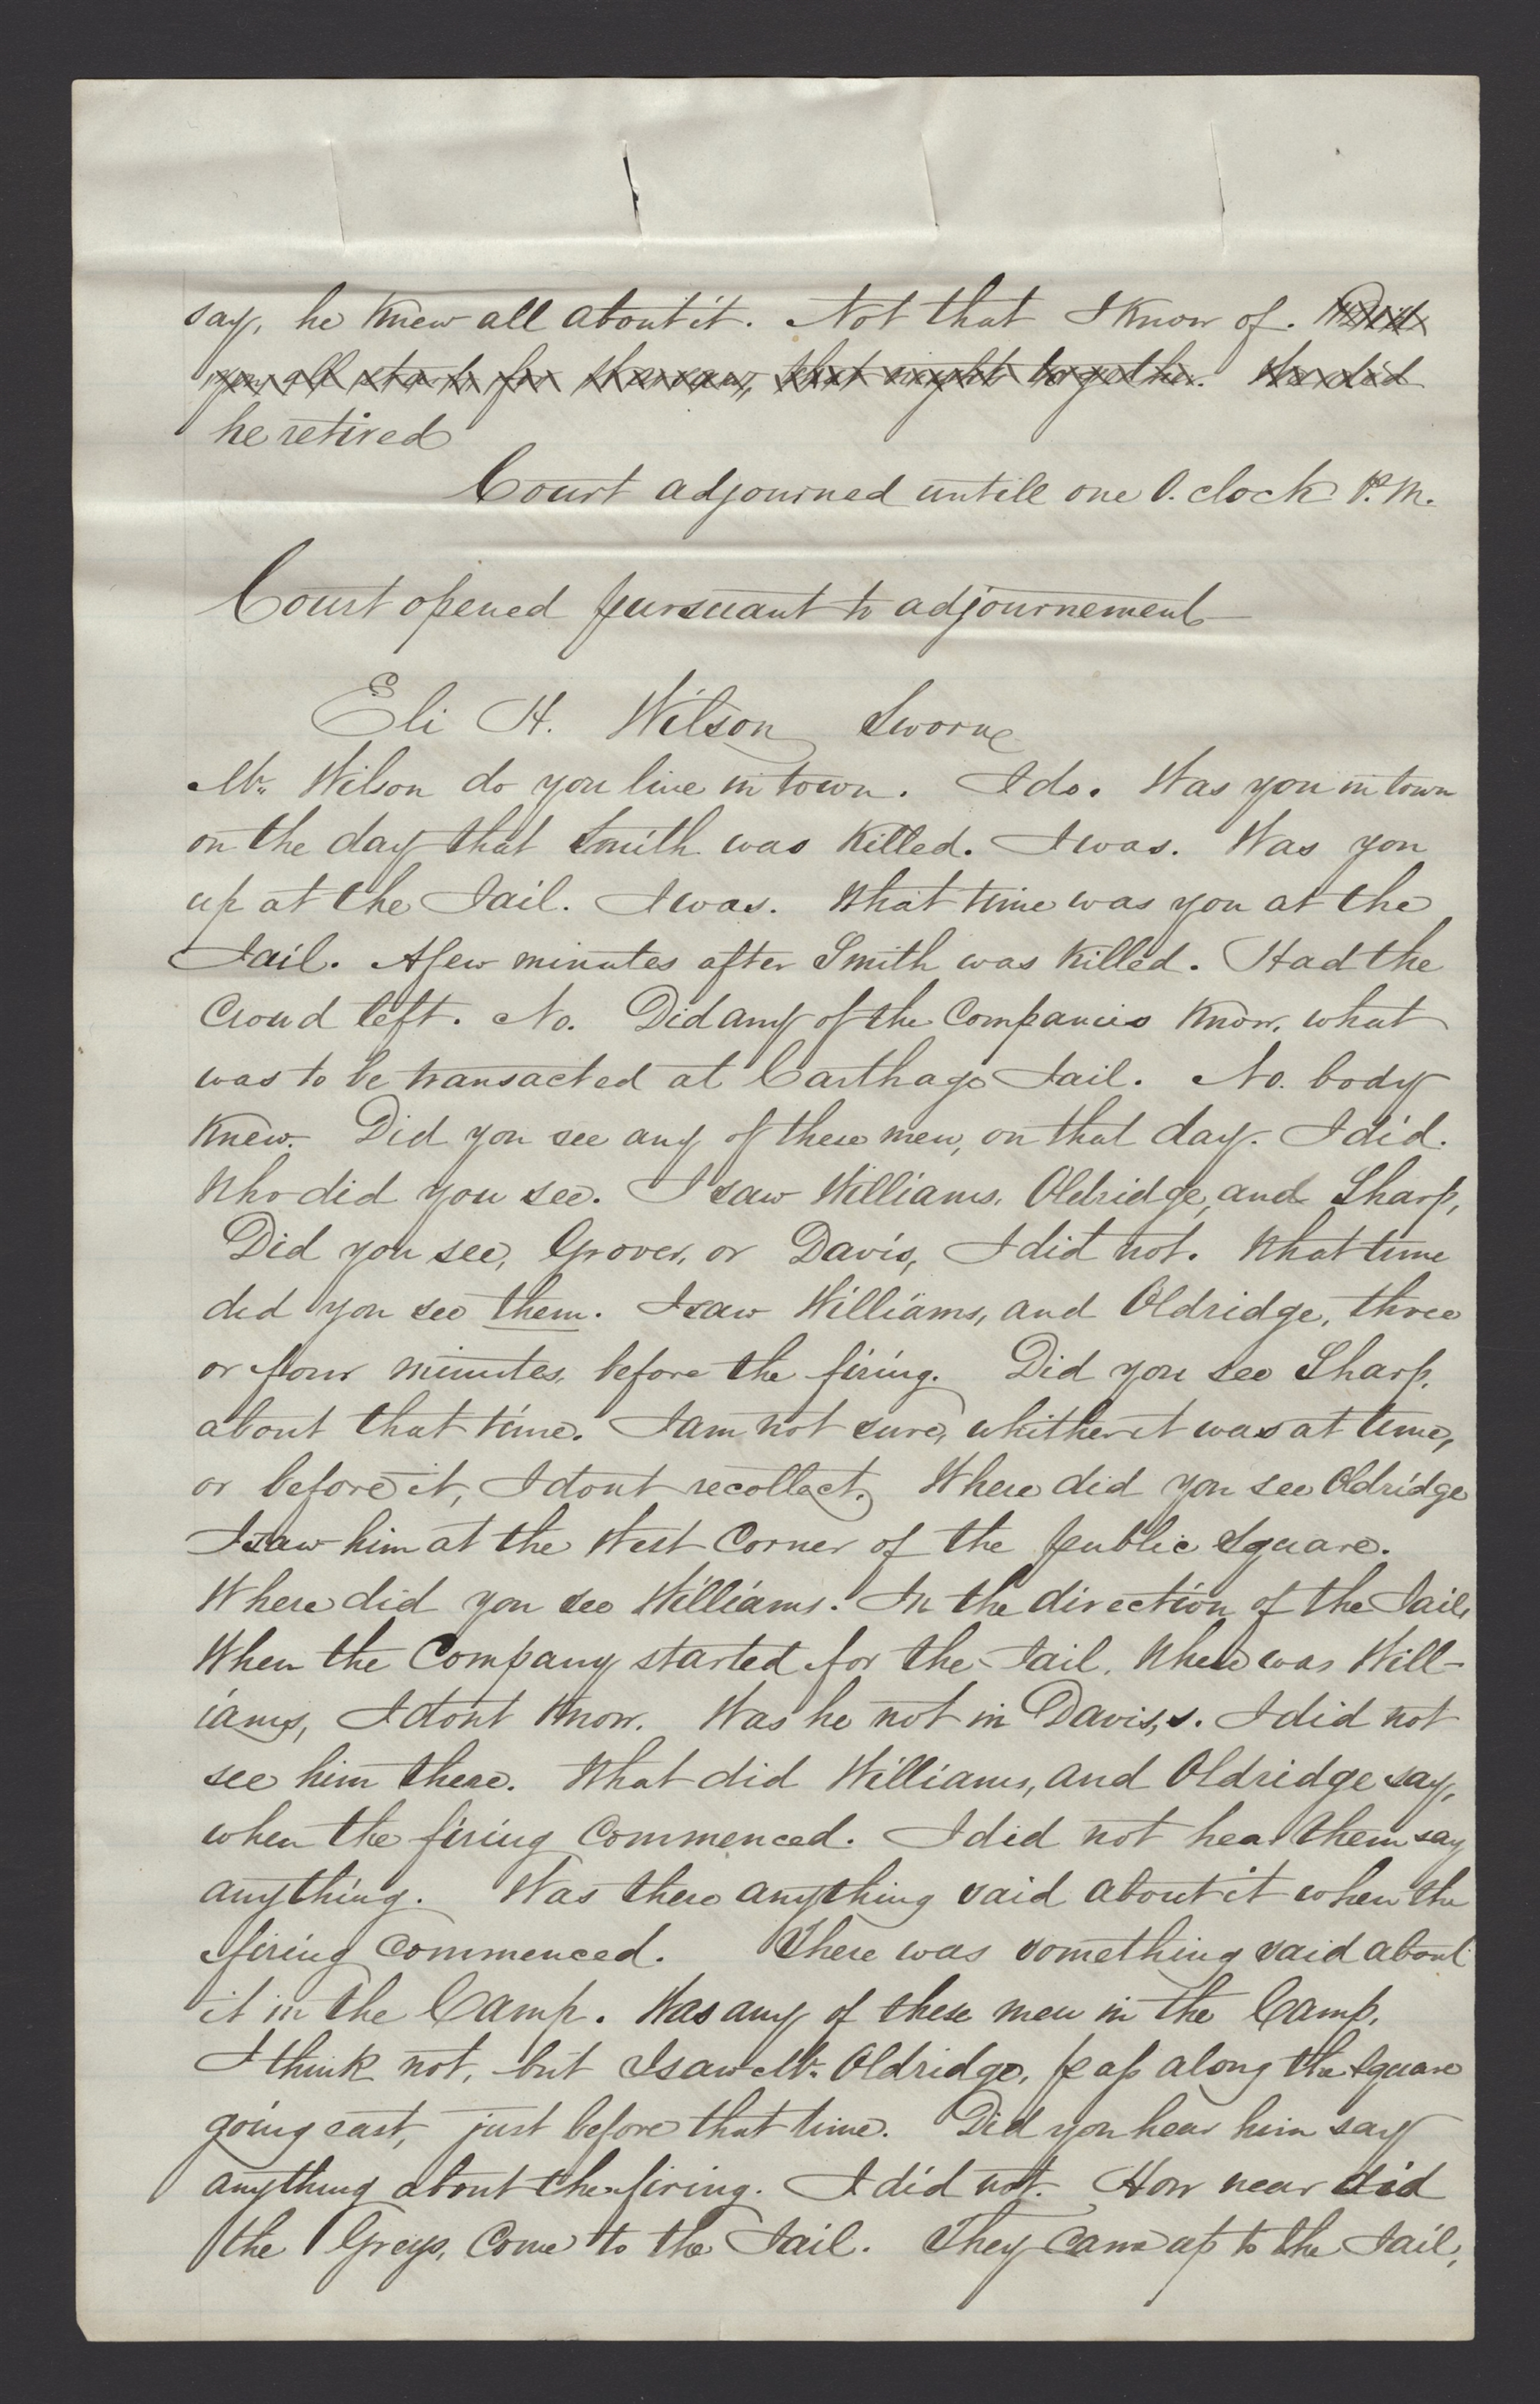 say, he Knew all about it. Not that I Know of. Did
you all start for Warsaw, that night together. We did
he retired
Court adjourned untill one O. clock P. M.
Court opened pursuant to adjournement
Eli H. Wilson Sworn
Mr. Wilson do you live in town. I do. Was you in town
on the day that Smith was Killed. I was. Was you
up at the Jail. I was. What time was you at the
Jail. A few minutes after Smith was Killed. Had the
Croud left. No. Did any of the Companies Know, what
was to be transacted at Carthage Jail. No. body
Knew. Did you see any of these men, on that day. I did.
Who did you see. I saw Williams, Oldridge, and Sharp,
Did you see, Grover, or Davis, I did not. What time
did you see them. I saw Williams, and Oldridge, three
or four minutes, before the firing. Did you see Sharp,
about that time. I am not sure, whither it was at time,
or before it, I dont recollect. Where did you see Oldridge
I saw him at the West Corner of the public Square.
Where did you see Williams. In the direction of the Jail,
When the Company started for the Jail, Where was Will-
iams, I dont Know. Was he not in Davis,s. I did not
see him there. What did Williams, and Oldridge say,
when the firing Commenced. I did not hear them say
anything. Was there anything said about it when the
firing Commenced. There was something said about
it in the Camp. Was any of these men in the Camp,
I think not, but I saw Mr. Oldridge, pass along the Square
going east, just before that time. Did you hear him say
anything about the firing. I did not. How near did
the Greys, Come to the Jail. They Came up to the Jail,